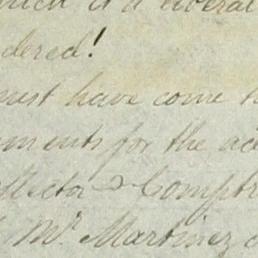 which is a liberal
dered!
must have come t
ments for the ac
llector & Comptr
Mr Martinez